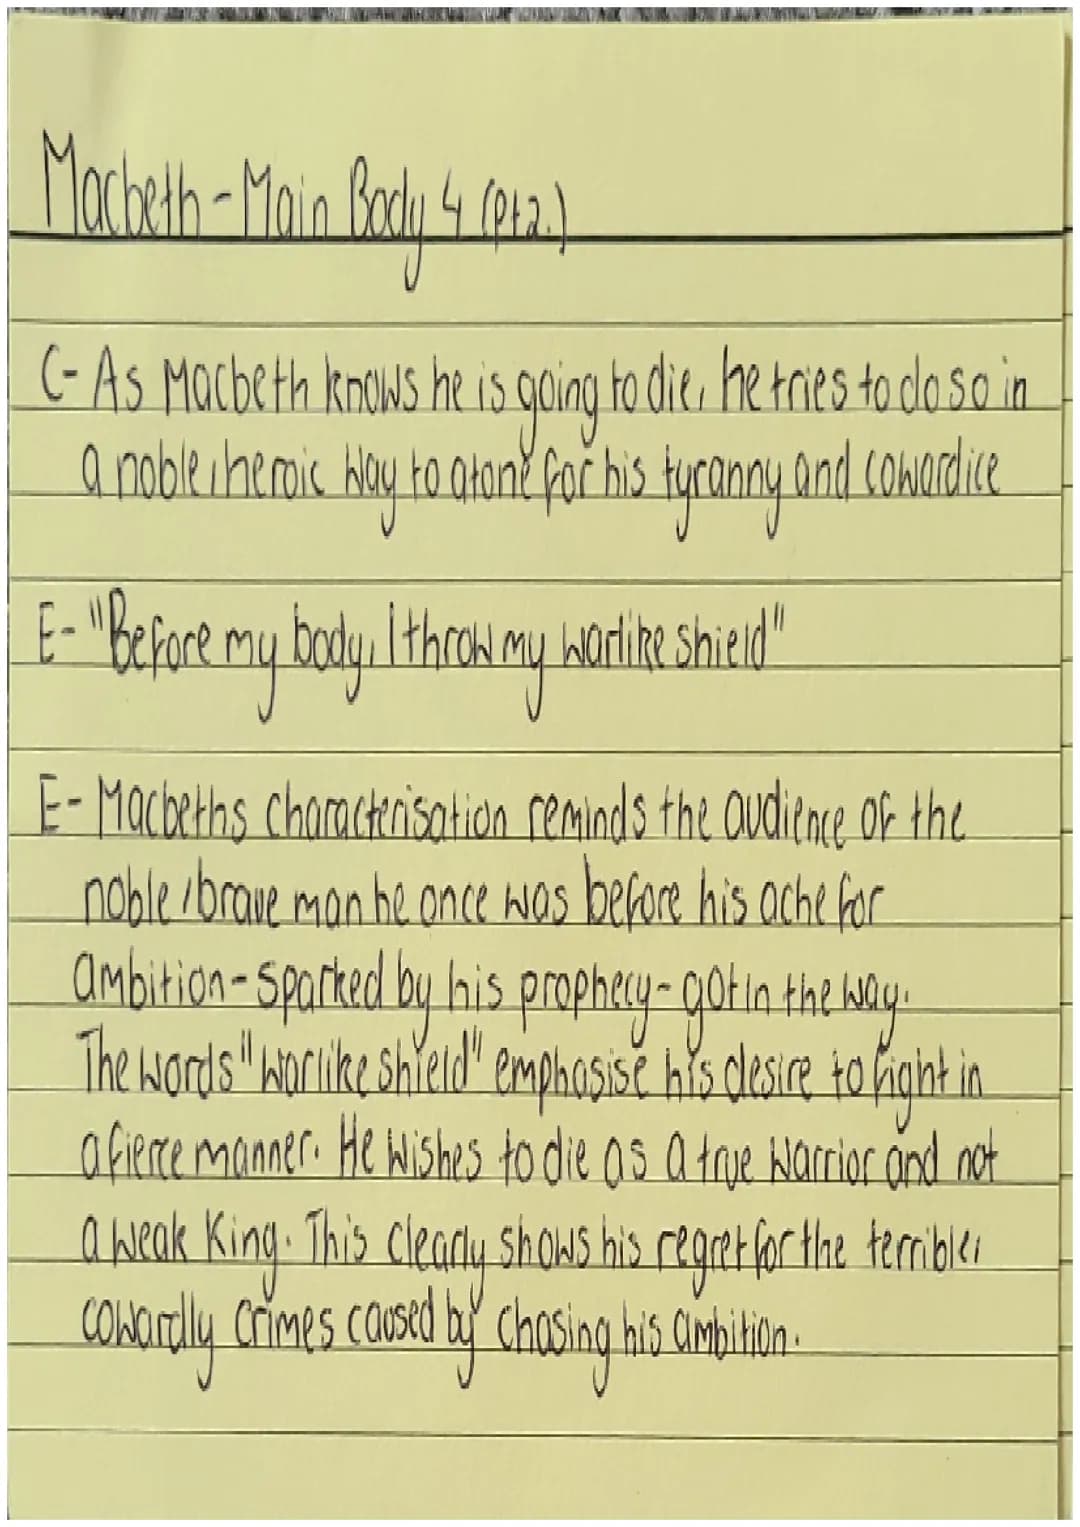 Macbeth - Main Body 4 (pt2.)
C- As Macbeth knows he is going to die, he tries to do so in
a noble, heroic way to atone for his tyranny and cowardice
E- "Before my body, I throw my warlike shield"
E- Macbeths characterisation reminds the audience of the
noble, brave man he once was before his ache for
ambition - sparked by his prophecy - got in the way.
The words "warlike shield" emphasise his desire to fight in
a fierce manner. He wishes to die as a true warrior and not
a weak King. This clearly shows his regret for the terrible,
cowardly crimes caused by chasing his ambition.